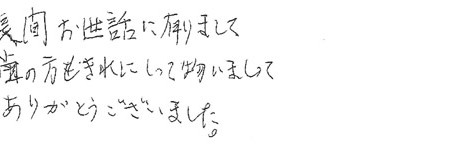 長間お世話に有りまして
歯の方もきれにしって物いまして
ありがとうございました。